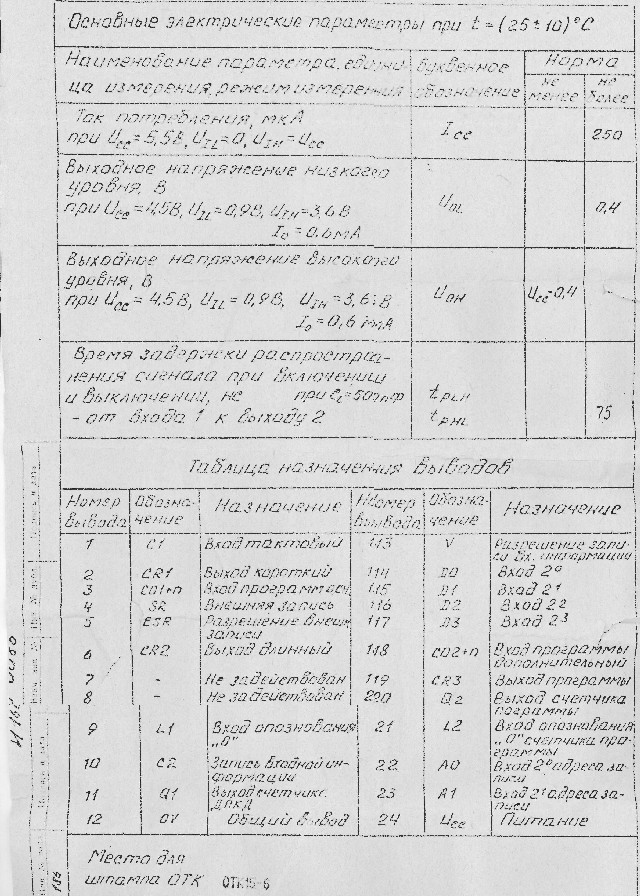 Основные электрические параметры при t = (25 ± 10)°C
Наименование параметра, едини- Буквенное Норма
ца измерения, режим измерения обозначение не менее не более
Ток потребления, мкА
при Ucc = 5,5В, UIL = 0, UIH = Ucc Icc 250
Выходное напряжение низкого
уровня, В
при Ucc = 4,5В, UIL = 0,9В, UIH = 3,6В UOL 0,4
Io = 0,6 мА
Выходное напряжение высокого
уровня, В
при Ucc = 4,5В, UIL = 0,9В, UIH = 3,6В UOH Ucc-0,4
Io = 0,6 мА
Время задержки распростра-
нения сигнала при включении
и выключении, нс при CL = 50пФ tPLH
- от входа 1 к выходу 2 tPHL 75
Таблица назначения выводов
Номер вывода Обозна-чение Назначение Номер вывода Обозна-чение Назначение
1 C1 Вход тактовый 113 V Разрешение запи-
си вх. информации
2 CR1 Выход короткий 114 D0 Вход 2⁰
3 Вход программ 115 D1 Вход 2¹
4 SR Внешняя запись 116 D2 Вход 2²
5 ESR Разрешение внеш. 117 D3 Вход 2³
записи
6 CR2 Выход длинный 118 CD2+n Вход программы
дополнительный
7 - Не задействован 119 CR3 Выход программы
8 - Не задействован Q2 Выход счетчика
пограммы
9 L1 Вход опознования 21 L2 Вход опознования
„0" „0" счетчика про-
граммы
10 C2 Запись входной ин- 22 A0 Вход 2⁰ адреса за-
формации писи
11 Q1 Выход счетчика 23 A1 Вход 2¹ адреса за-
ДПКД писи
12 0V Общий вывод 24 Ucc Питание
Место для
штампа ОТК ОТК15-6